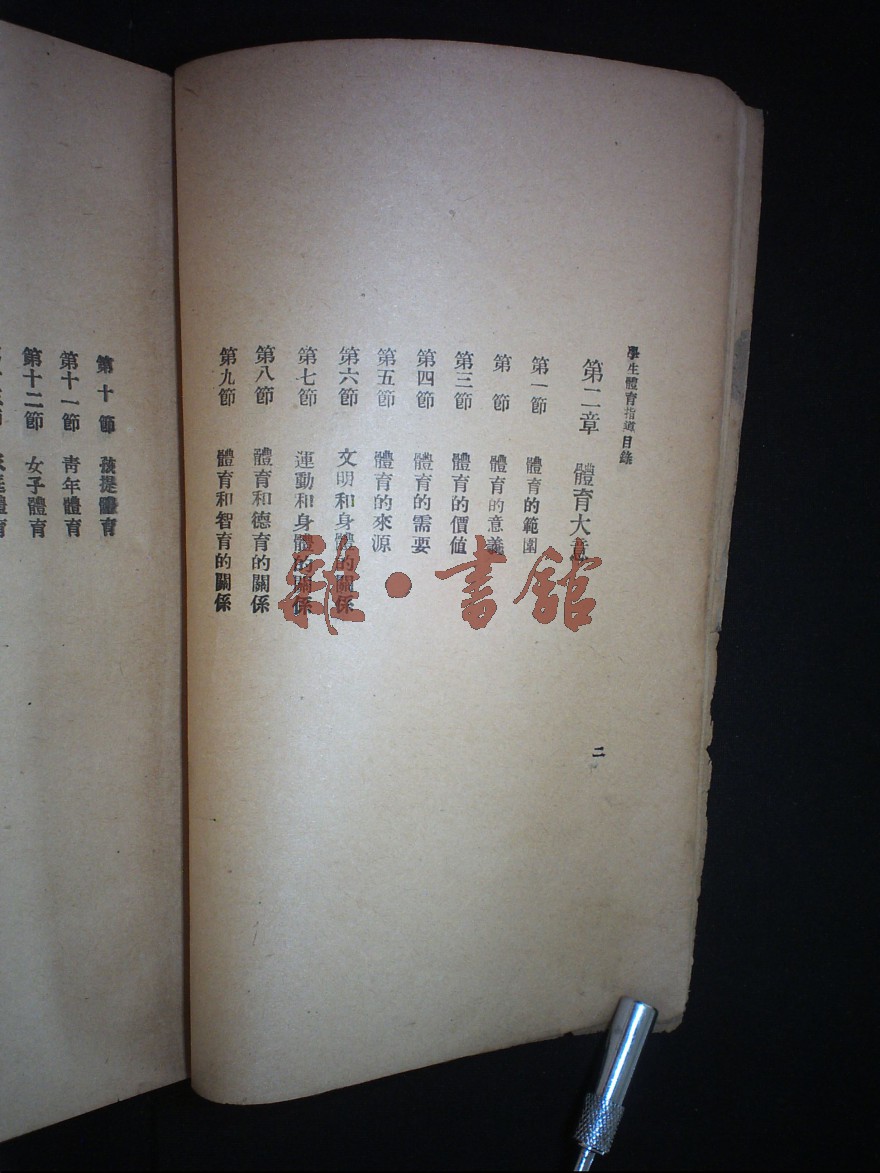 學生體育指導目錄
第二章 體育大意
第一節 體育的範圍
第 節 體育的意義
第三節 體育的價值
第四節 體育的需要
第五節 體育的來源
第六節 文明和身體的關係
第七節 運動和身體的關係
第八節 體育和德育的關係
第九節 體育和智育的關係
二
第十節 孩提體育
第十一節 青年體育
第十二節 女子體育
雜·書館